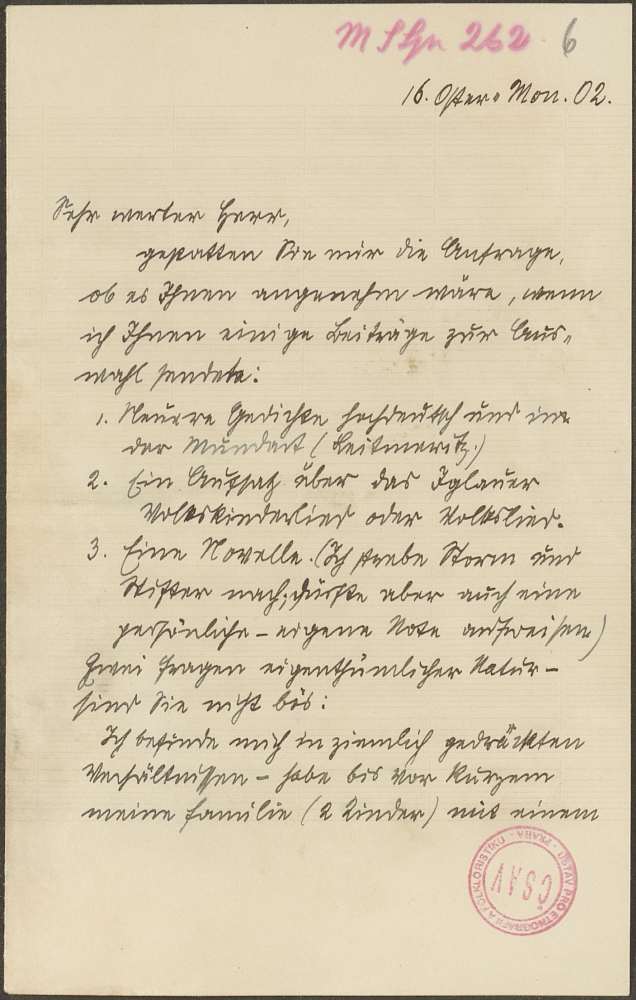 M S Gn 262 6
16. Oster-Mon. 02.
Sehr werter Herr,
gestatten Sie mir die Anfrage,
ob es Ihnen angenehm wäre, wenn
ich Ihnen einige Beiträge zur Aus-
wahl sendete:
1. Neuere Gedichte hochdeutsch und in
der Mundart (Leitmeritz.)
2. Ein Aufsatz über das Iglauer
Volkskinderlied oder Volkslied.
3. Eine Novelle. (Ich strebe Storm und
Stifter nach, dürfte aber auch eine
persönliche - eigene Note aufweisen)
Zwei Fragen eigenthümlicher Natur -
sind Sie nicht bös:
Ich befinde mich in ziemlich gedrückten
Verhältnissen - habe bis vor Kurzem
meine Familie (2 Kinder) mit einem
ÚSTAV PRO ETNOGRAFII A FOLKLORISTIKU · PRAHA ·
ČSAV